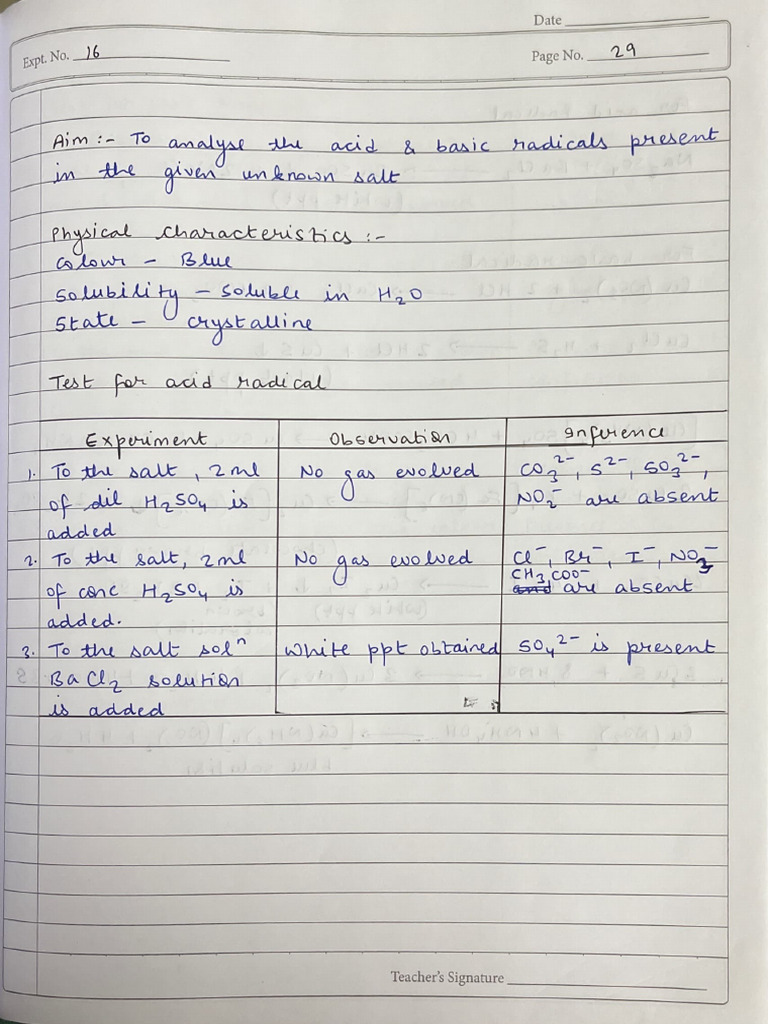 Date
Expt. No. 16
Page No. 29
Aim :- To analyse the acid & basic radicals present
in the given unknown salt
Physical characteristics :-
Colour - Blue
Solubility - soluble in H₂O
State - crystalline
Test for acid radical
Experiment Observation Inference
1. To the salt, 2 ml No gas evolved CO₃²⁻, S²⁻, SO₃²⁻,
of dil H₂SO₄ is NO₂⁻ are absent
added
2. To the salt, 2 ml No gas evolved Cl⁻, Br⁻, I⁻, NO₃⁻
CH₃COO⁻
of conc H₂SO₄ is and are absent
added.
3. To the salt solⁿ White ppt obtained SO₄²⁻ is present
BaCl₂ solution
is added
Teacher's Signature